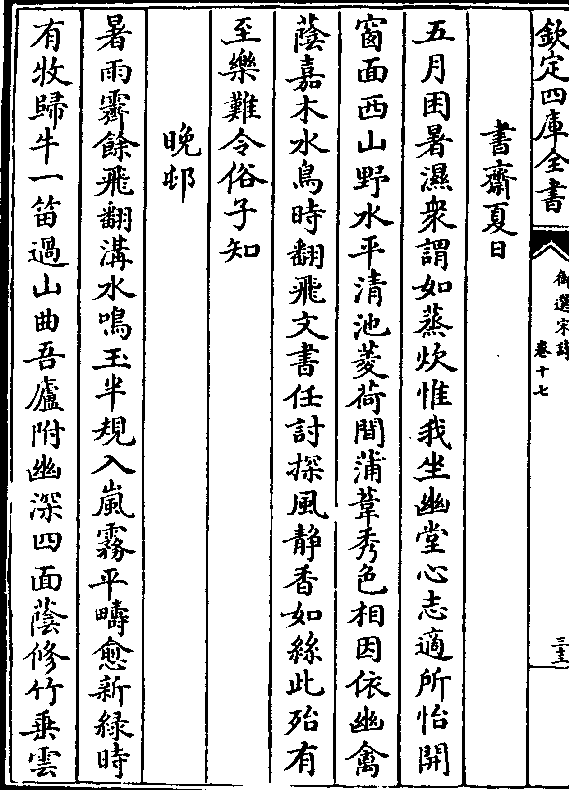 欽定四庫全書
御選宋詩
卷十七
書齋夏日
五月困暑濕衆謂如蒸炊惟我坐幽堂心志適所怡開
窗面西山野水平清池菱荷間蒲葦秀色相因依幽禽
蔭嘉木水鳥時翻飛文書任討探風静香如絲此殆有
至樂難令俗子知
晚邨
暑雨霽餘飛翻溝水鳴玉半規入嵐霧平疇愈新緑時
有牧歸牛一笛過山曲吾廬附幽深四面蔭修竹垂雲